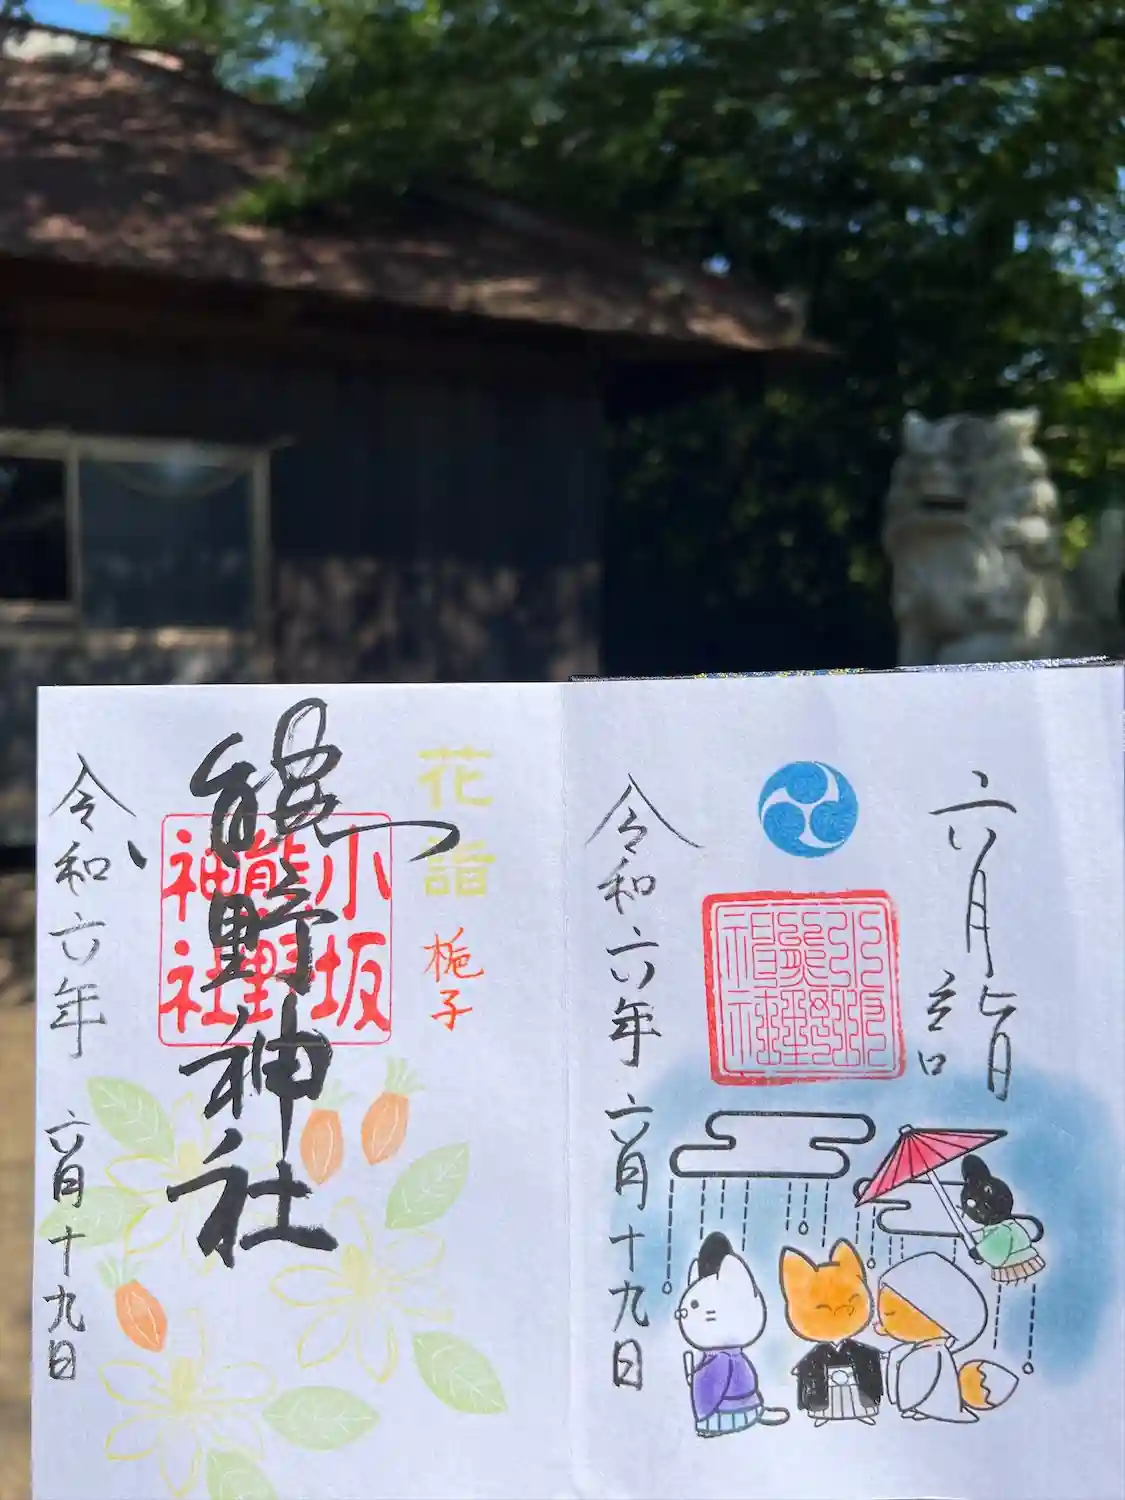 六月詣
六月
令和六年 六月十九日
花詣
梔子
熊野神社
小坂
熊野
神社
令和六年 六月十九日